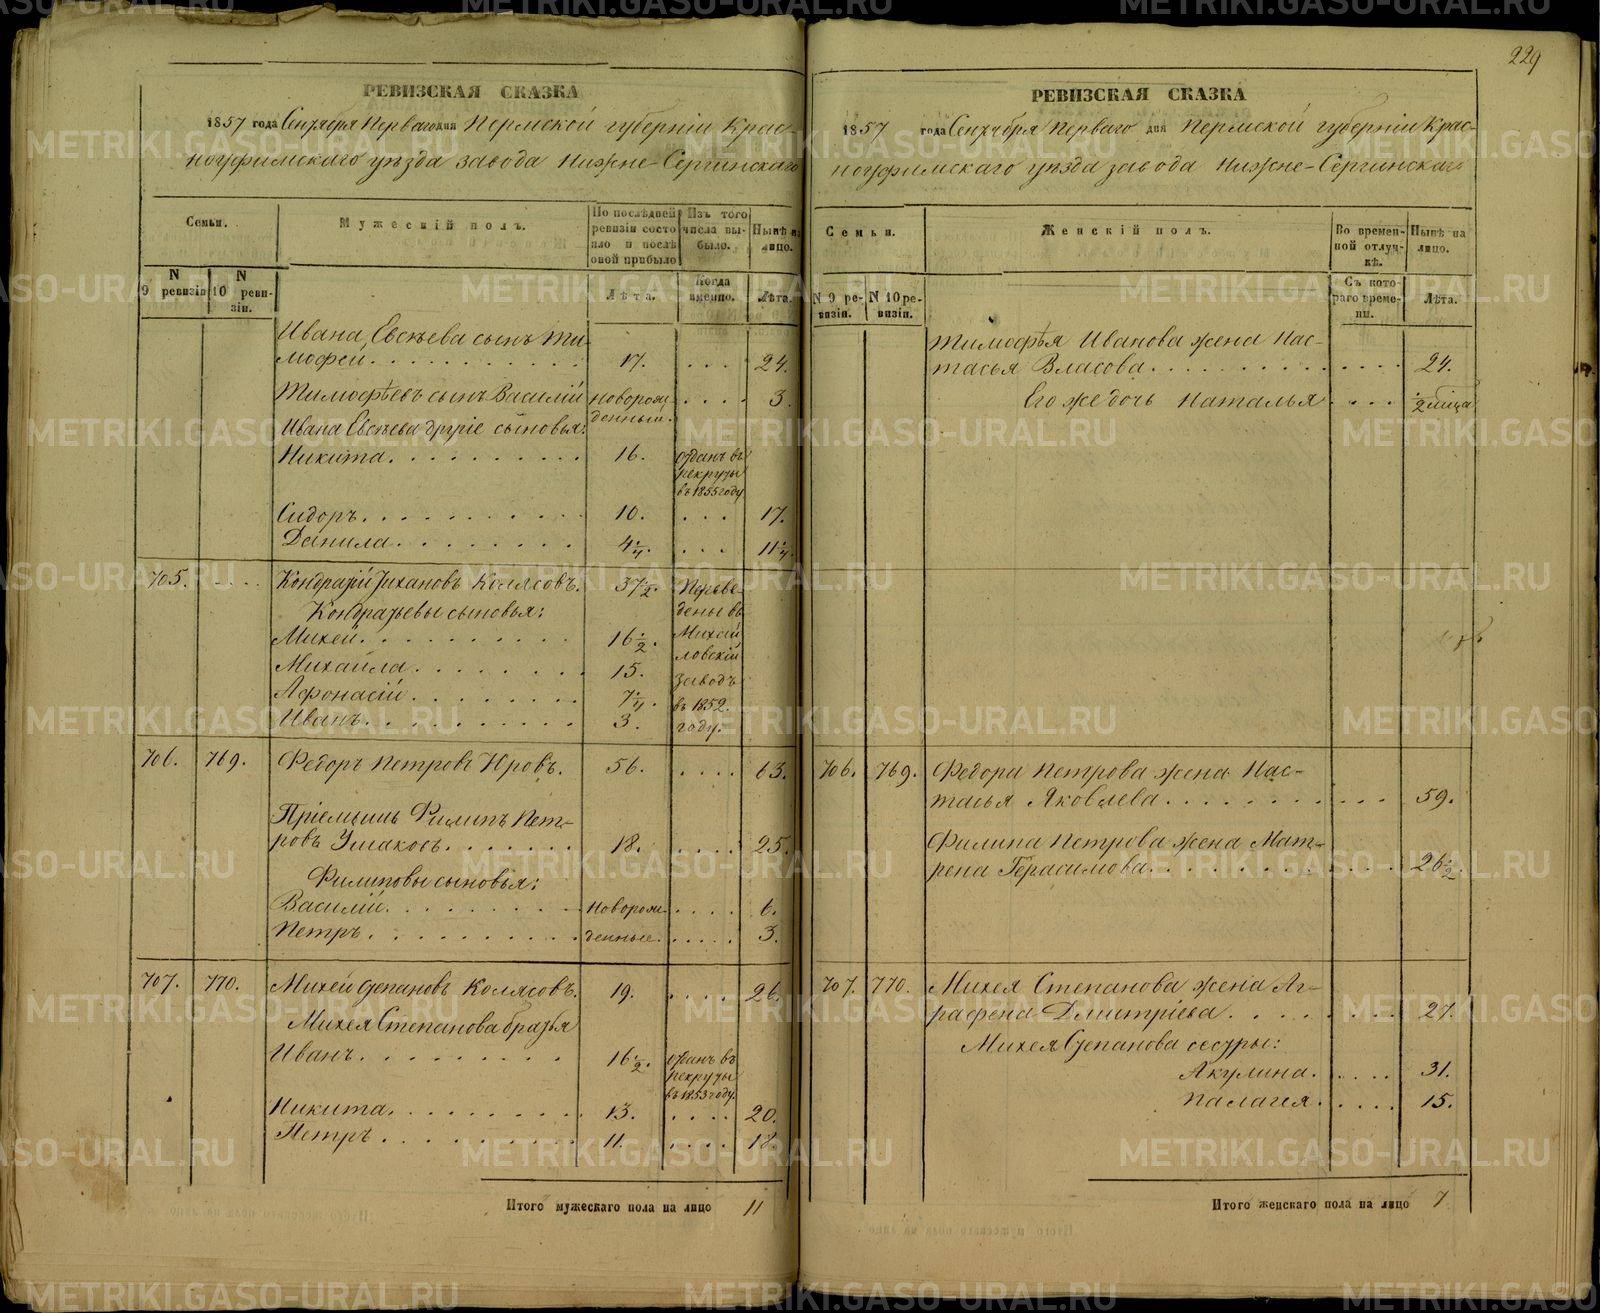 229
РЕВИЗСКАЯ СКАЗКА
1857 года Сентября Перваго дня Пермской губерніи Крас-
ноуфимскаго уѣзда завода Нижне-Сергинскаго
Семьи.
Мужескій полъ.
По послѣдней ревизіи состояло и послѣ оной прибыло
Изъ того числа выбыло.
Нынѣ на лицо.
N 9 ревизіи
N 10 ревизіи.
Лѣта.
Когда именно.
Лѣта.
Ивана Евсѣева сынъ Ти-
мофей. 17. . . . 24.
Тимофѣевъ сынъ Василій новорож- . . . . 3.
денный.
Ивана Евсѣева другіе сыновья:
Никита. 16. отданъ въ
рекруты
въ 1855 году
Сидоръ. 10. . . . 17.
Данила. 4 1/4. . . . 11 1/4.
705. . . . . Кондратій Тихановъ Колясовъ. 37 1/2. Переве-
Кондратьевы сыновья: дены въ
Михей. 16 1/2. Михай
ловскій
Михайла. 15. заводъ
Афонасій. 7 1/4. въ 1852.
Иванъ. 3. году.
706. 769. Федоръ Петровъ Юровъ. 56. . . . . 63.
Пріемышъ Филипъ Пет-
ровъ Ушаковъ. 18. . . . . 25.
Филиповы сыновья:
Василій. новорож- . . . . 6.
Петръ. денные. . . . . 3.
707. 770. Михей Степановъ Колясовъ. 19. . . . . 26.
Михея Степанова братья
Иванъ. 16 1/2. отданъ въ
рекруты
въ 1853 году.
Никита. 13. . . . . 20.
Петръ. 11. . . . . 18.
Итого мужескаго пола на лицо 11
РЕВИЗСКАЯ СКАЗКА
1857 года Сентября Перваго дня Пермской губерніи Крас-
ноуфимскаго уѣзда завода Нижне-Сергинскаго
Семьи.
Женскій полъ.
Во временной отлучкѣ.
Нынѣ на лицо.
N 9 ревизіи.
N 10 ревизіи.
Съ котораго времени.
Лѣта.
Тимофѣя Иванова жена Нас-
тасья Власова. . . . 24.
Его же дочь Наталья . . . 1/2 мѣсяца
706. 769. Федора Петрова жена Нас-
тасья Яковлева. . . . 59.
Филипа Петрова жена Мат-
рена Герасимова. . . . 26 1/2.
707. 770. Михея Степанова жена Аг-
рафена Дмитріева. . . . 27.
Михея Степанова сестры:
Акулина. . . . . 31.
Палагея. . . . . 15.
Итого женскаго пола на лицо 7
METRIKI.GASO-URAL.RU